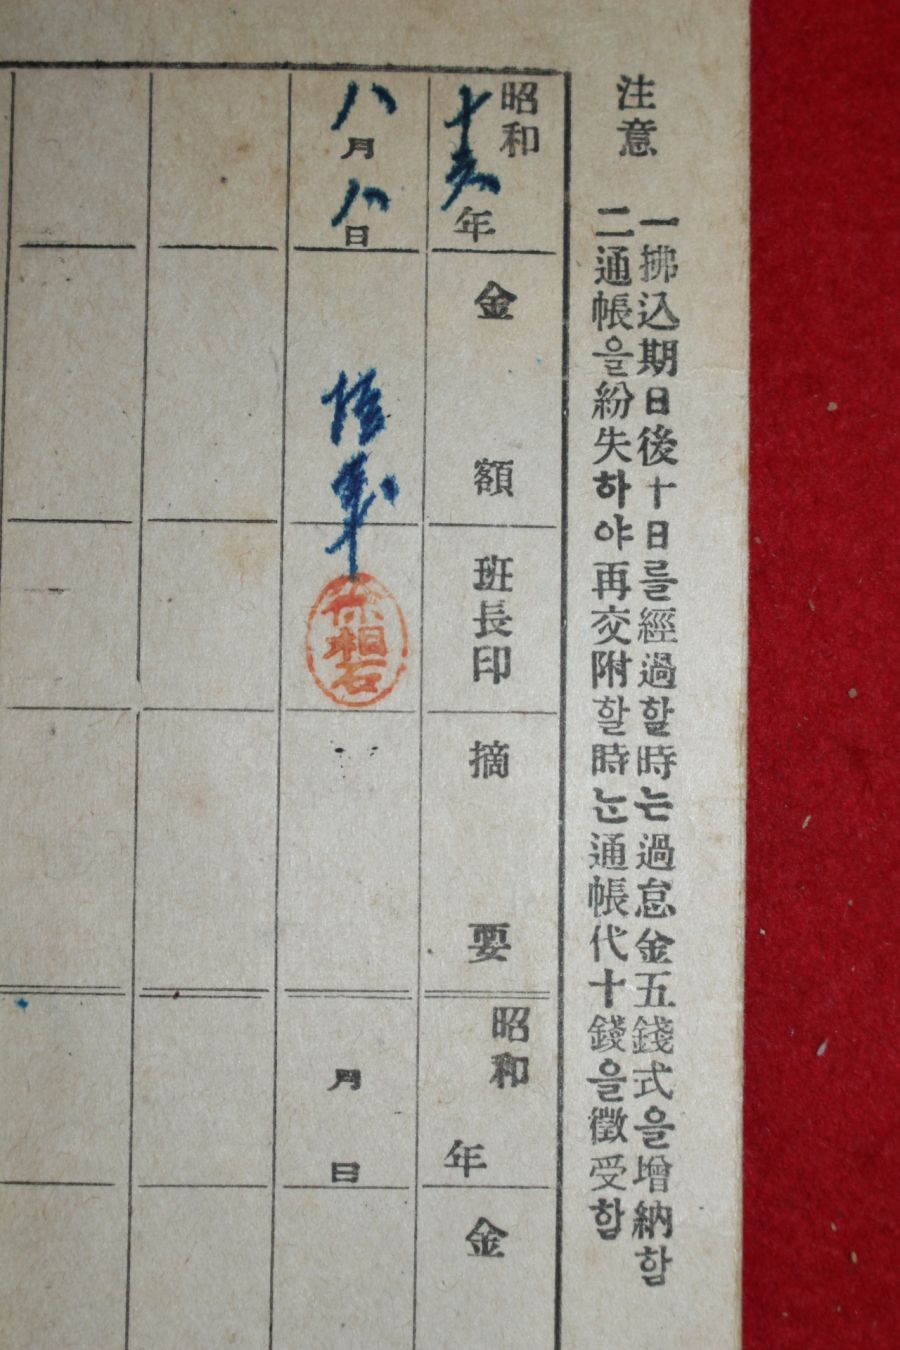 注意
一拂込期日後十日를經過할時는過怠金五錢式을增納함
二通帳을紛失하야再交附할時는通帳代十錢을徵受함
昭和十六年
金額
班長印
摘要
昭和 年
金
八月八日
相石
月 日